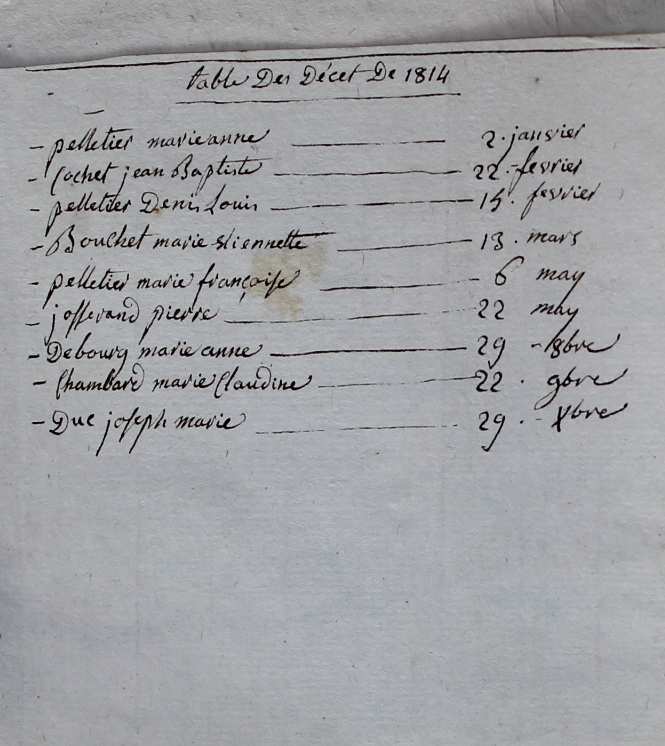 table Des Décet De 1814
- pelletier marie anne — 2. janvier
- Cochet jean Baptiste — 22. fevrier
- pelletier Denis Louis — 15. fevrier
- Bouchet marie stiennette — 13. mars
- pelletier marie françoise — 6 may
- josserand pierre — 22 may
- Debourg marie anne — 29 - 8bre
- Chambard marie Claudine — 22. 9bre
- Duc joseph marie — 29. - Xbre